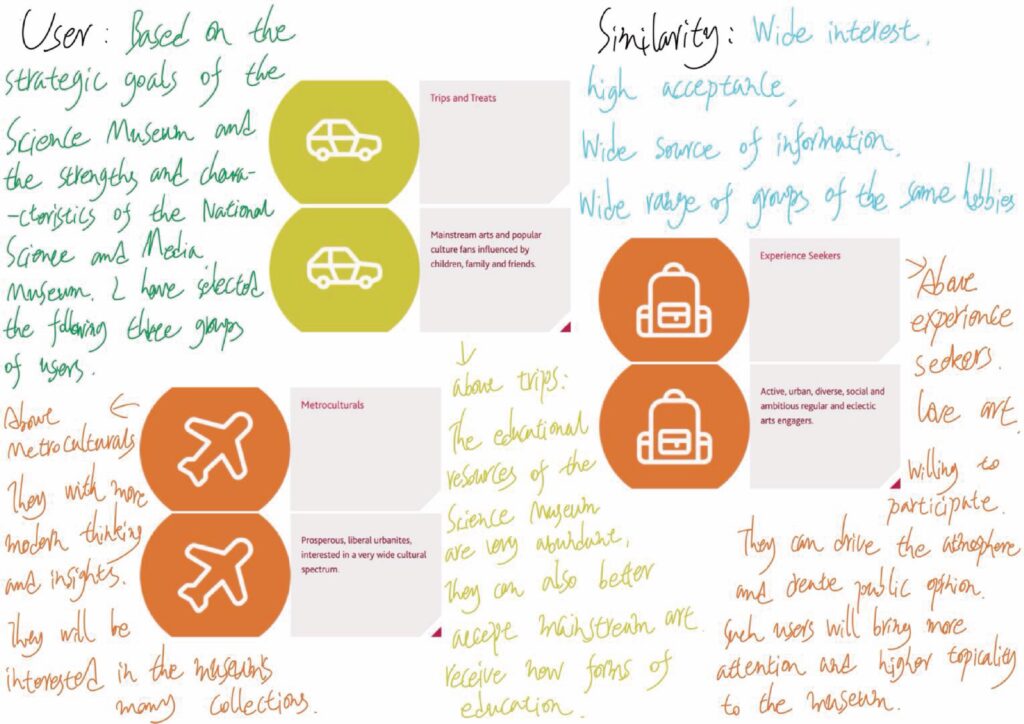 User: Based on the
strategic goals of the
Science Museum and
the strengths and chara-
-cteristics of the National
Science and Media
Museum. I have selected
the following three groups
of users.
Similarity: Wide interest,
high acceptance,
Wide source of information.
Wide range of groups of the same hobbies
Trips and Treats
Mainstream arts and popular
culture fans influenced by
children, family and friends.
above trips:
The educational
resources of the
Science Museum
are very abundant,
They can also better
accept mainstream art.
receive new forms of
education.
Experience Seekers
Active, urban, diverse, social and
ambitious regular and eclectic
arts engagers.
Above
experience
seekers.
Love art.
Willing to
participate.
They can drive the atmosphere
and create public opinion.
such users will bring more
attention and higher topicality
to the museum.
Metroculturals
Prosperous, liberal urbanites,
interested in a very wide cultural
spectrum.
Above
Metroculturals
They with more
modern thinking
and insights.
They will be
interested in the museum's
many collections.